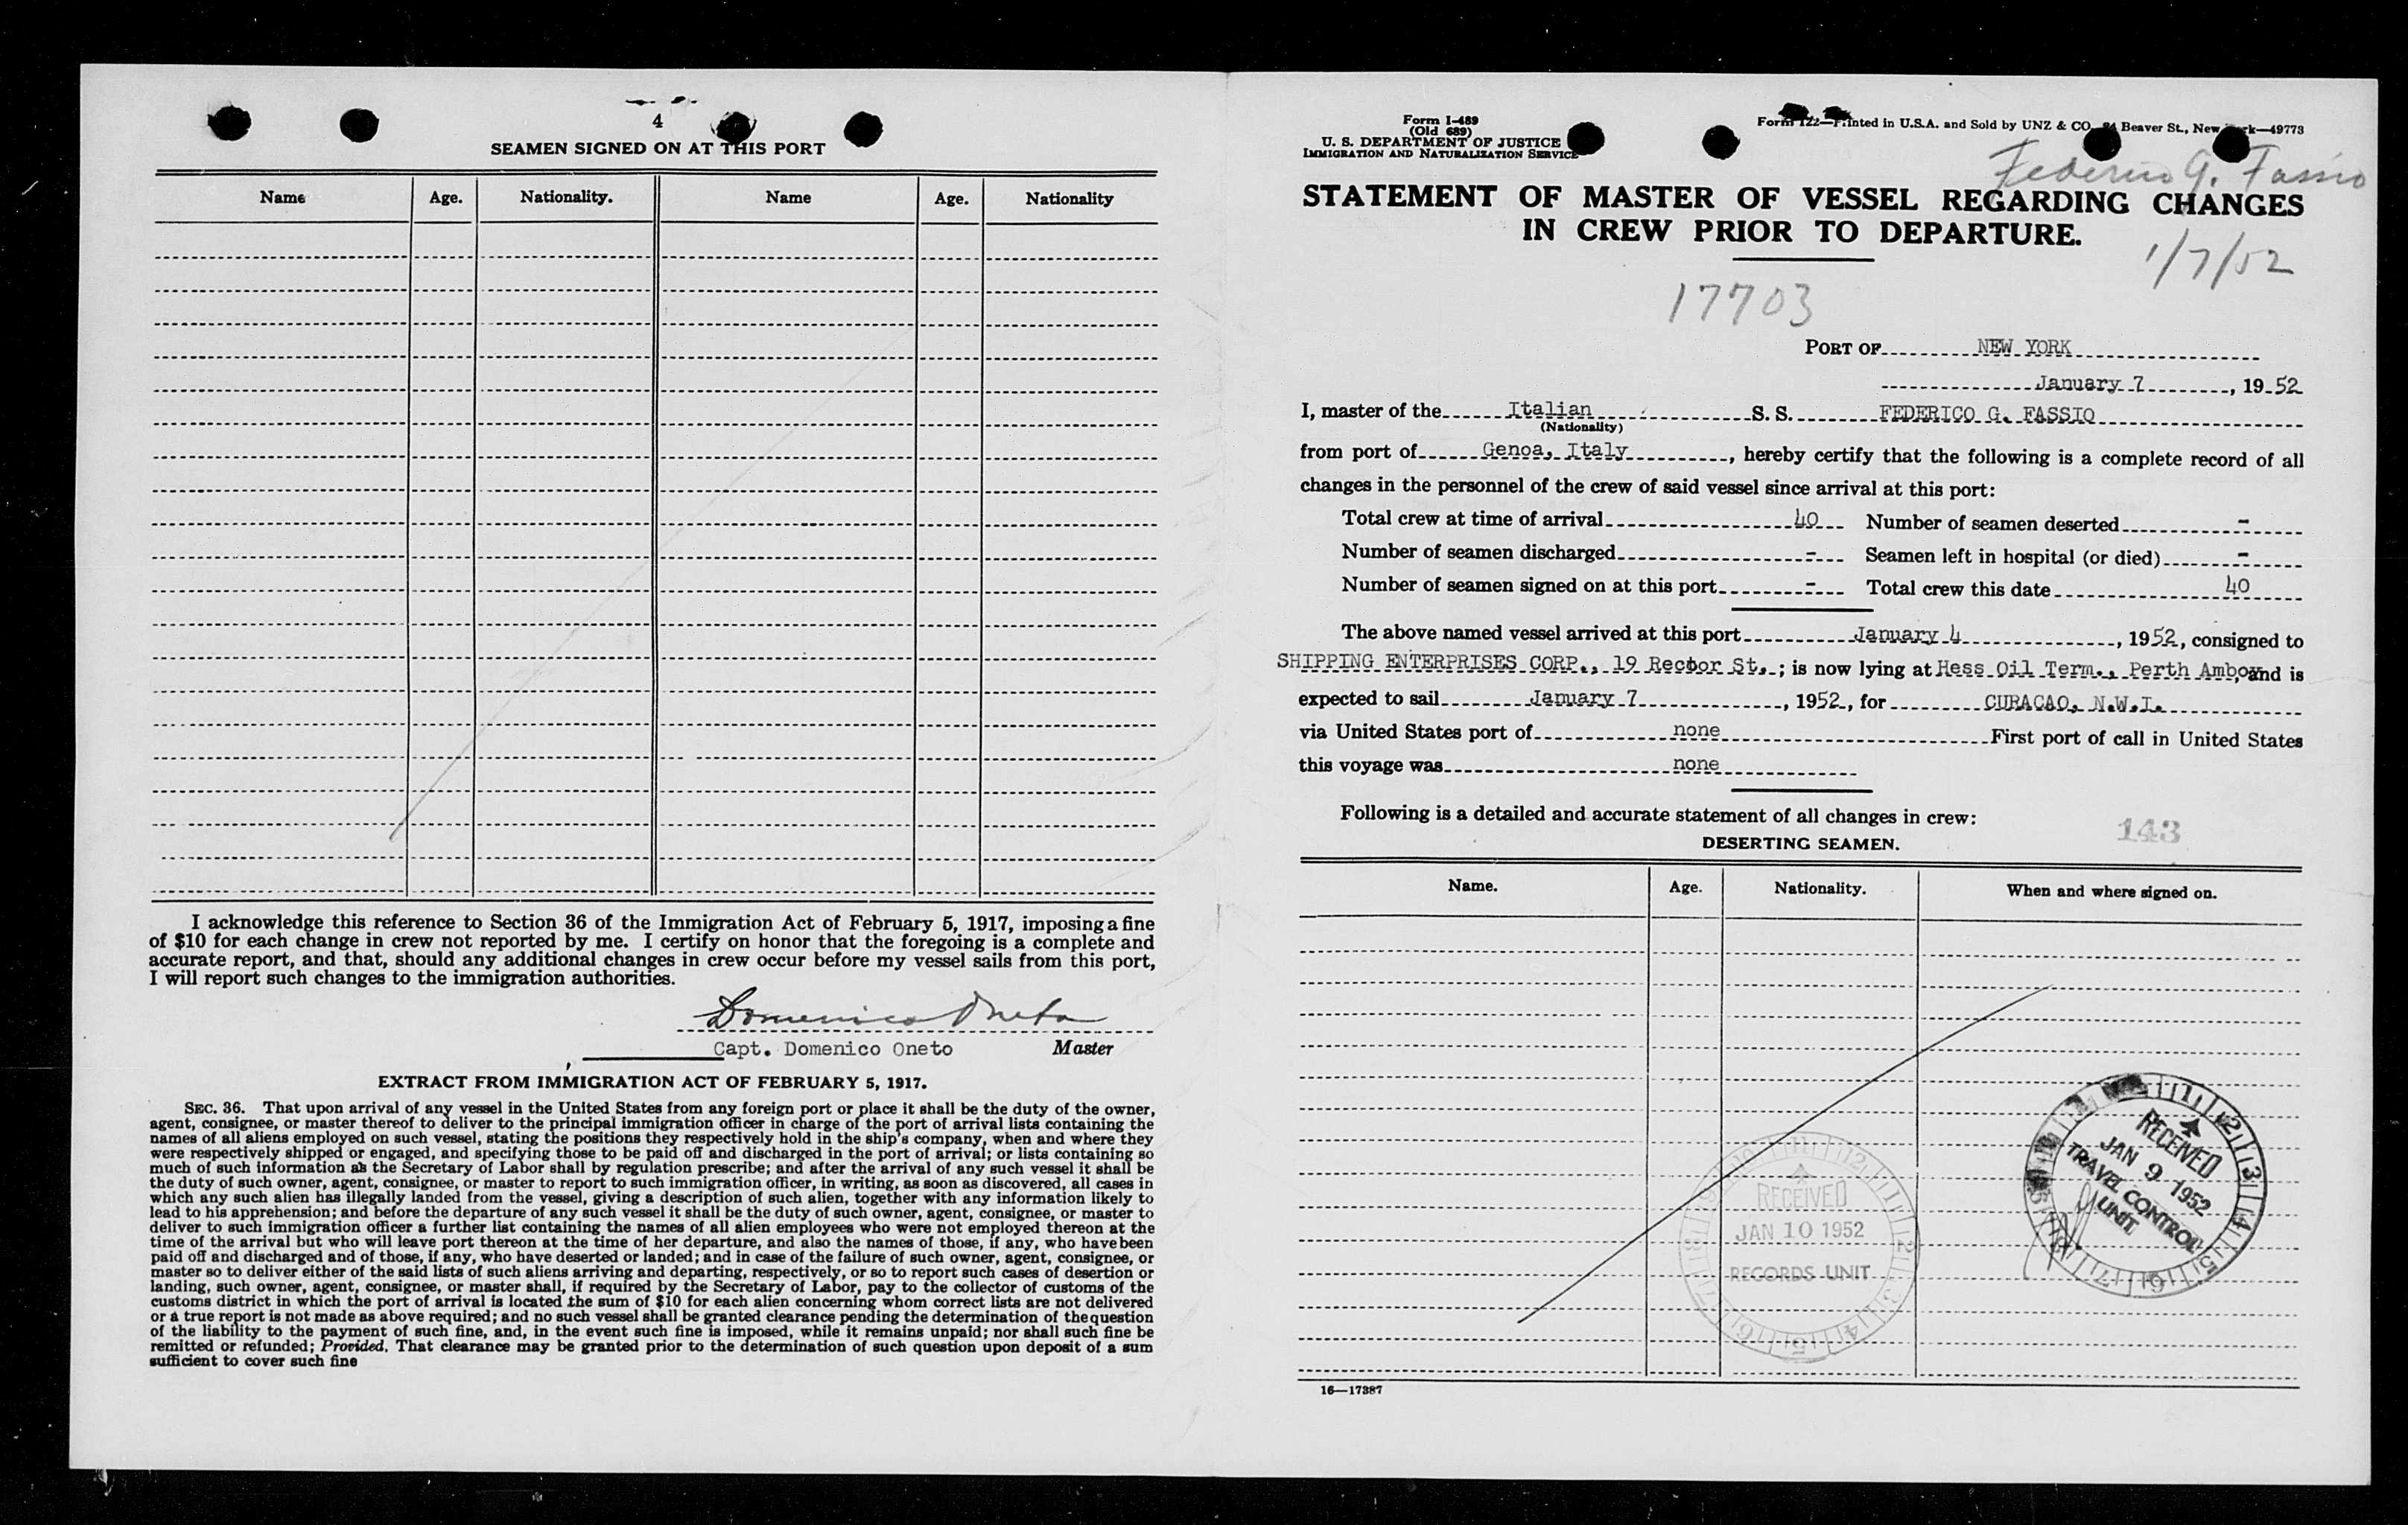 4
SEAMEN SIGNED ON AT THIS PORT
Name Age. Nationality. Name Age. Nationality
I acknowledge this reference to Section 36 of the Immigration Act of February 5, 1917, imposing a fine
of $10 for each change in crew not reported by me. I certify on honor that the foregoing is a complete and
accurate report, and that, should any additional changes in crew occur before my vessel sails from this port,
I will report such changes to the immigration authorities.
Domenico Oneto
Capt. Domenico Oneto Master
EXTRACT FROM IMMIGRATION ACT OF FEBRUARY 5, 1917.
SEC. 36. That upon arrival of any vessel in the United States from any foreign port or place it shall be the duty of the owner,
agent, consignee, or master thereof to deliver to the principal immigration officer in charge of the port of arrival lists containing the
names of all aliens employed on such vessel, stating the positions they respectively hold in the ship's company, when and where they
were respectively shipped or engaged, and specifying those to be paid off and discharged in the port of arrival; or lists containing so
much of such information as the Secretary of Labor shall by regulation prescribe; and after the arrival of any such vessel it shall be
the duty of such owner, agent, consignee, or master to report to such immigration officer, in writing, as soon as discovered, all cases in
which any such alien has illegally landed from the vessel, giving a description of such alien, together with any information likely to
lead to his apprehension; and before the departure of any such vessel it shall be the duty of such owner, agent, consignee, or master to
deliver to such immigration officer a further list containing the names of all alien employees who were not employed thereon at the
time of the arrival but who will leave port thereon at the time of her departure, and also the names of those, if any, who have been
paid off and discharged and of those, if any, who have deserted or landed; and in case of the failure of such owner, agent, consignee, or
master so to deliver either of the said lists of such aliens arriving and departing, respectively, or so to report such cases of desertion or
landing, such owner, agent, consignee, or master shall, if required by the Secretary of Labor, pay to the collector of customs of the
customs district in which the port of arrival is located the sum of $10 for each alien concerning whom correct lists are not delivered
or a true report is not made as above required; and no such vessel shall be granted clearance pending the determination of the question
of the liability to the payment of such fine, and, in the event such fine is imposed, while it remains unpaid; nor shall such fine be
remitted or refunded; Provided, That clearance may be granted prior to the determination of such question upon deposit of a sum
sufficient to cover such fine
Form I-489
(Old 689)
U. S. DEPARTMENT OF JUSTICE
IMMIGRATION AND NATURALIZATION SERVICE
Form 122—Printed in U.S.A. and Sold by UNZ & CO. Beaver St., New York—49773
Federico G. Fassio
STATEMENT OF MASTER OF VESSEL REGARDING CHANGES
IN CREW PRIOR TO DEPARTURE.
1/7/52
17703
PORT OF NEW YORK
January 7, 1952
I, master of the Italian S. S. FEDERICO G. FASSIO
(Nationality)
from port of Genoa, Italy, hereby certify that the following is a complete record of all
changes in the personnel of the crew of said vessel since arrival at this port:
Total crew at time of arrival 40 Number of seamen deserted -
Number of seamen discharged - Seamen left in hospital (or died) -
Number of seamen signed on at this port - Total crew this date 40
The above named vessel arrived at this port January 4, 1952, consigned to
SHIPPING ENTERPRISES CORP., 19 Rector St.; is now lying at Hess Oil Term., Perth Amboy, and is
expected to sail January 7, 1952, for CURACAO, N.W.I.
via United States port of none First port of call in United States
this voyage was none
Following is a detailed and accurate statement of all changes in crew:
143
DESERTING SEAMEN.
Name. Age. Nationality. When and where signed on.
RECEIVED
JAN 9 1952
TRAVEL CONTROL
UNIT
RECEIVED
JAN 10 1952
RECORDS UNIT
16—17387